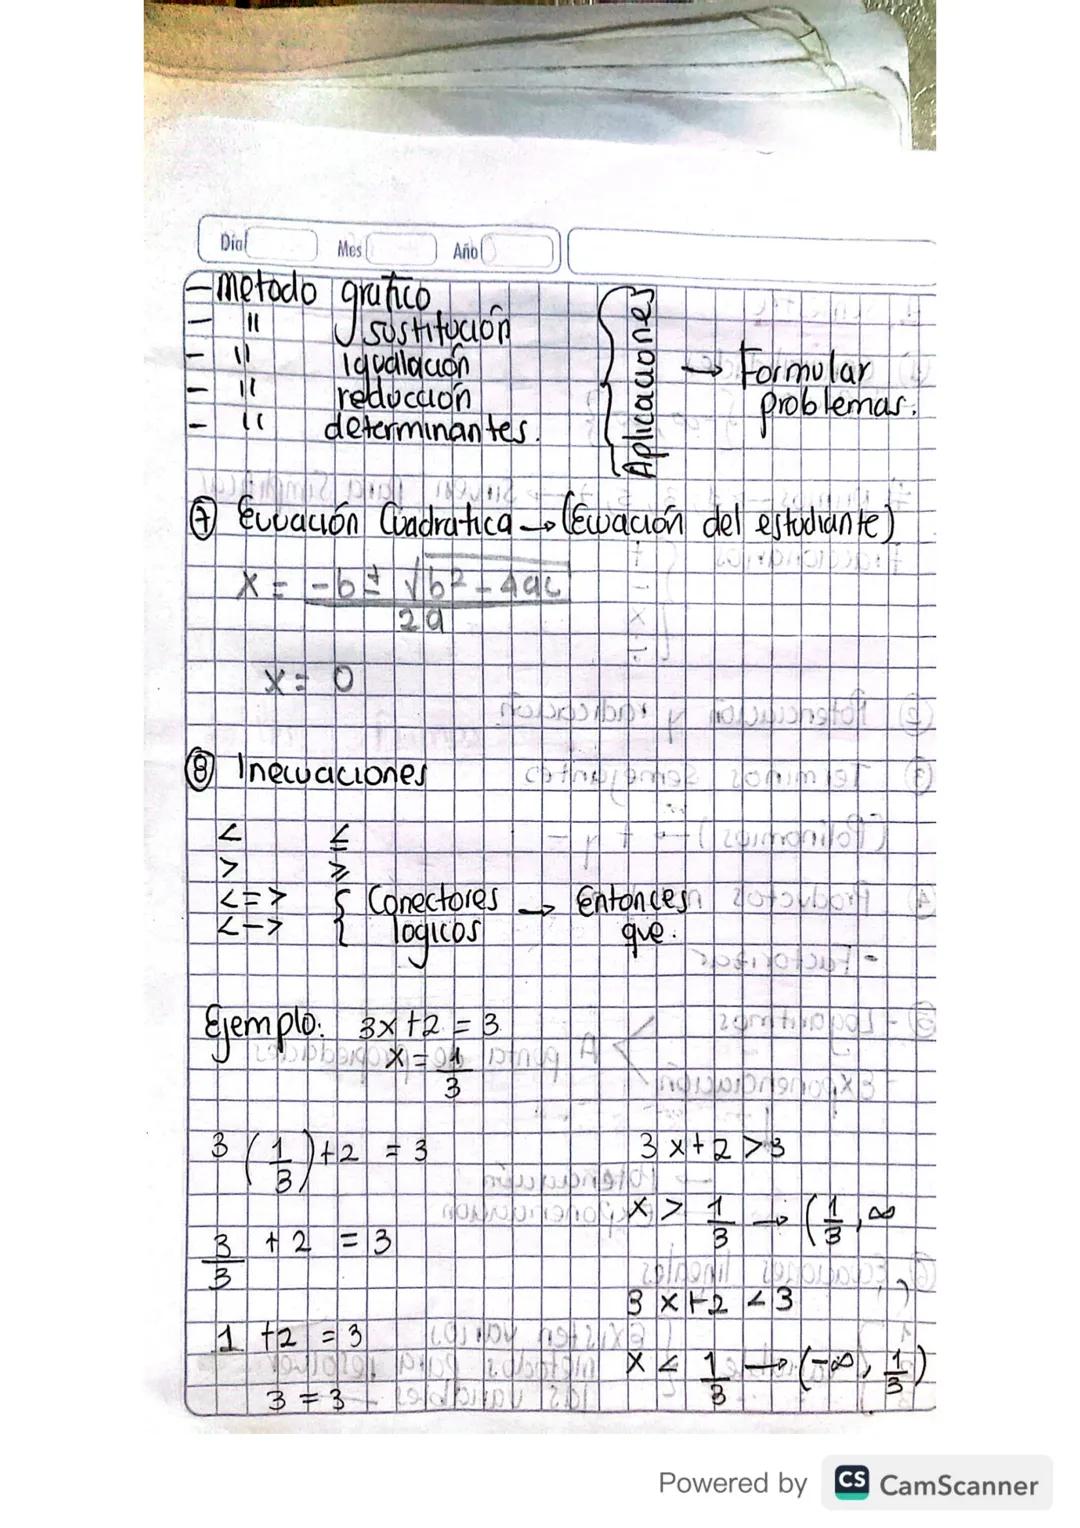 Día Mes Año
- metodo grafico
- " sustitución
- " igualación
- " reducción
- " determinantes.
Aplicaciones → Formular
problemas.
⑦ Ecuación Cuadratica → (Ecuación del estudiante)
x = -b ± √b² - 4ac
2a
x = 0
⑧ Inecuaciones
< ≤
> ≥
<=> { Conectores → Entonces
<-> logicos que.
Ejemplo: 3x+2 = 3
x = 1
3
3 (1/3) + 2 = 3
3x+2 > 3
x > 1/3 → (1/3, ∞
3/3 + 2 = 3
3x+2 < 3
1 + 2 = 3
x < 1/3 → (-∞, 1/3)
3 = 3
Powered by CS CamScanner